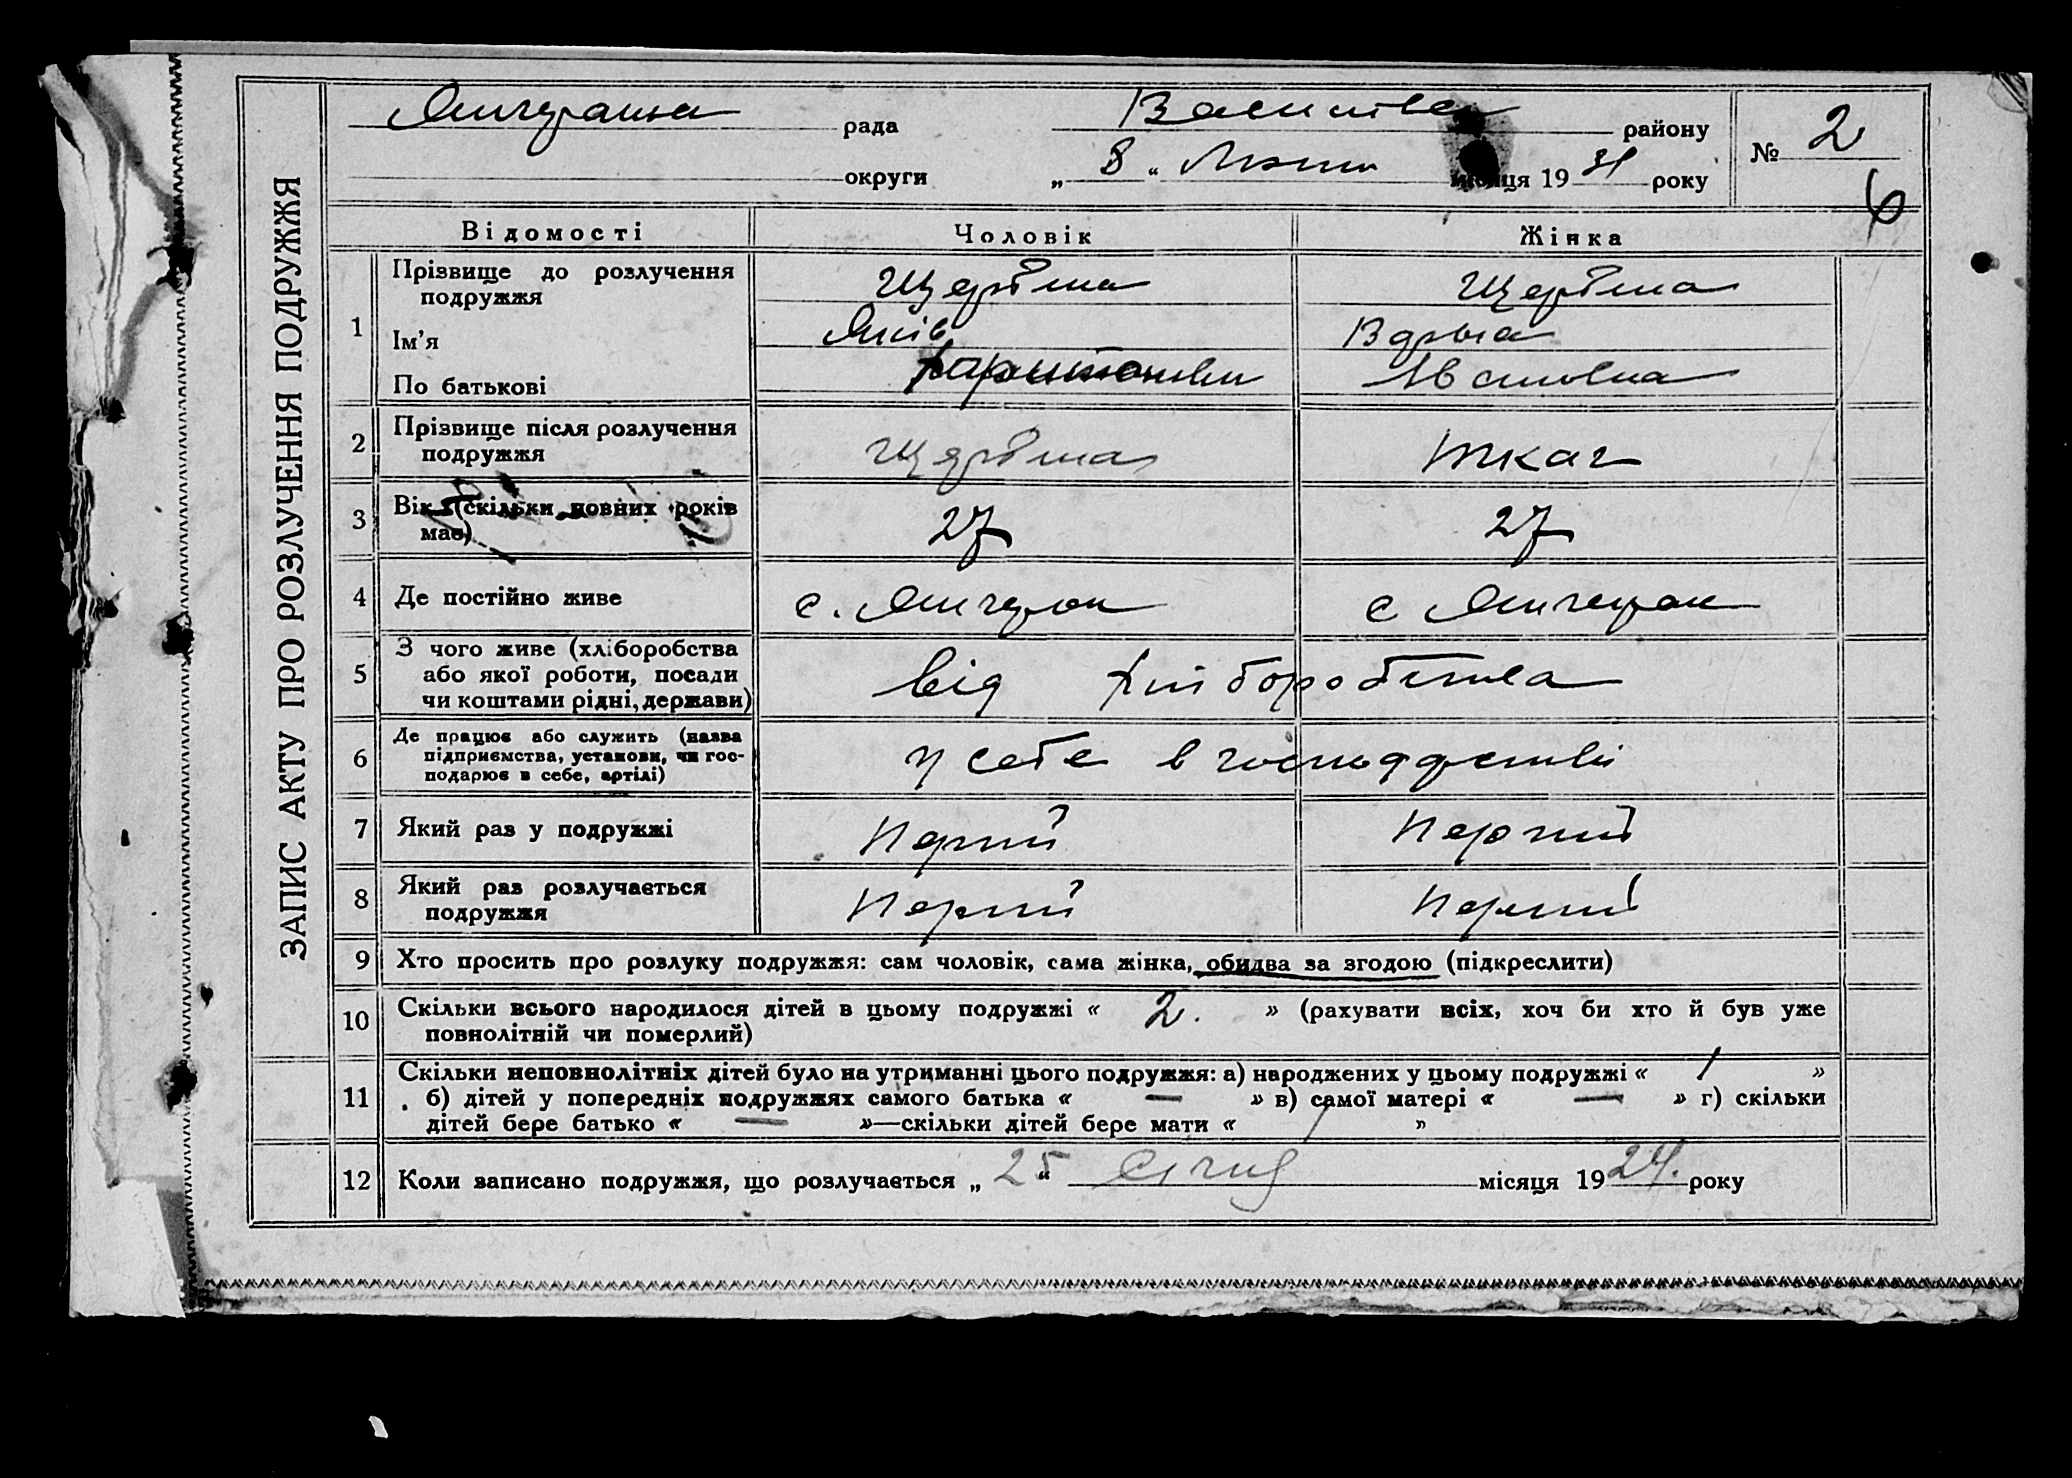 ЗАПИС АКТУ ПРО РОЗЛУЧЕННЯ ПОДРУЖЖЯ
рада
району
№ 2
округи
„ 8 “ місяця 19 31 року
6
Відомості Чоловік Жінка
1 Прізвище до розлучення подружжя Щербина Щербина
Ім'я Яків
По батькові Харитонови
2 Прізвище після розлучення подружжя Щербина Ткач
3 Вік (скільки повних років має) 27 27
4 Де постійно живе с. с
5 З чого живе (хліборобства або якої роботи, посади чи коштами рідні, держави) від хліборобства
6 Де працює або служить (назва підприємства, установи, чи господарює в себе, артілі) у себе в господарстві
7 Який раз у подружжі Перший Перший
8 Який раз розлучається подружжя Перший Перший
9 Хто просить про розлуку подружжя: сам чоловік, сама жінка, обидва за згодою (підкреслити)
10 Скільки всього народилося дітей в цьому подружжі « 2. » (рахувати всіх, хоч би хто й був уже
повнолітній чи померлий)
11 Скільки неповнолітніх дітей було на утриманні цього подружжя: а) народжених у цьому подружжі « 1 »
б) дітей у попередніх подружжях самого батька « — » в) самої матері « — » г) скільки
дітей бере батько « — »—скільки дітей бере мати « 1 »
12 Коли записано подружжя, що розлучається „ 25 “ Січня місяця 19 24. року